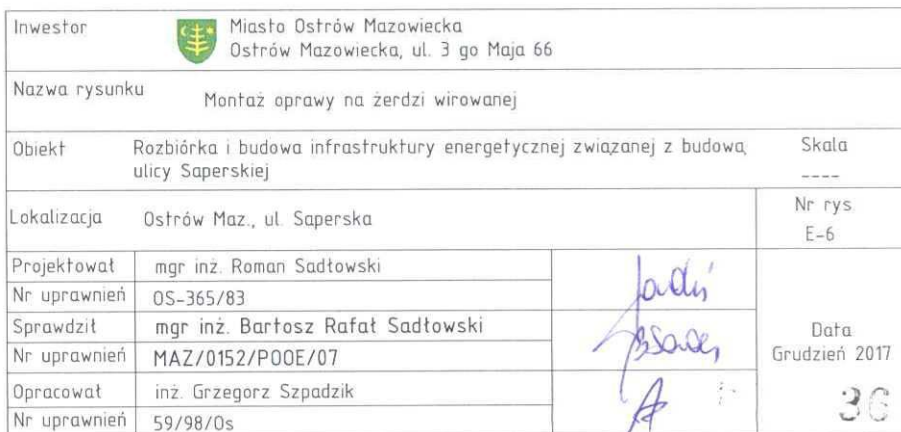 Inwestor
Miasto Ostrów Mazowiecka
Ostrów Mazowiecka, ul. 3 go Maja 66
Nazwa rysunku
Montaż oprawy na żerdzi wirowanej
Obiekt
Rozbiórka i budowa infrastruktury energetycznej związanej z budową
ulicy Saperskiej
Skala
----
Lokalizacja
Ostrów Maz., ul. Saperska
Nr rys
E-6
Projektował
mgr inż. Roman Sadłowski
Nr uprawnień
OS-365/83
Sprawdził
mgr inż. Bartosz Rafał Sadłowski
Nr uprawnień
MAZ/0152/POOE/07
Opracował
inż. Grzegorz Szpadzik
Nr uprawnień
59/98/Os
Data
Grudzień 2017
36